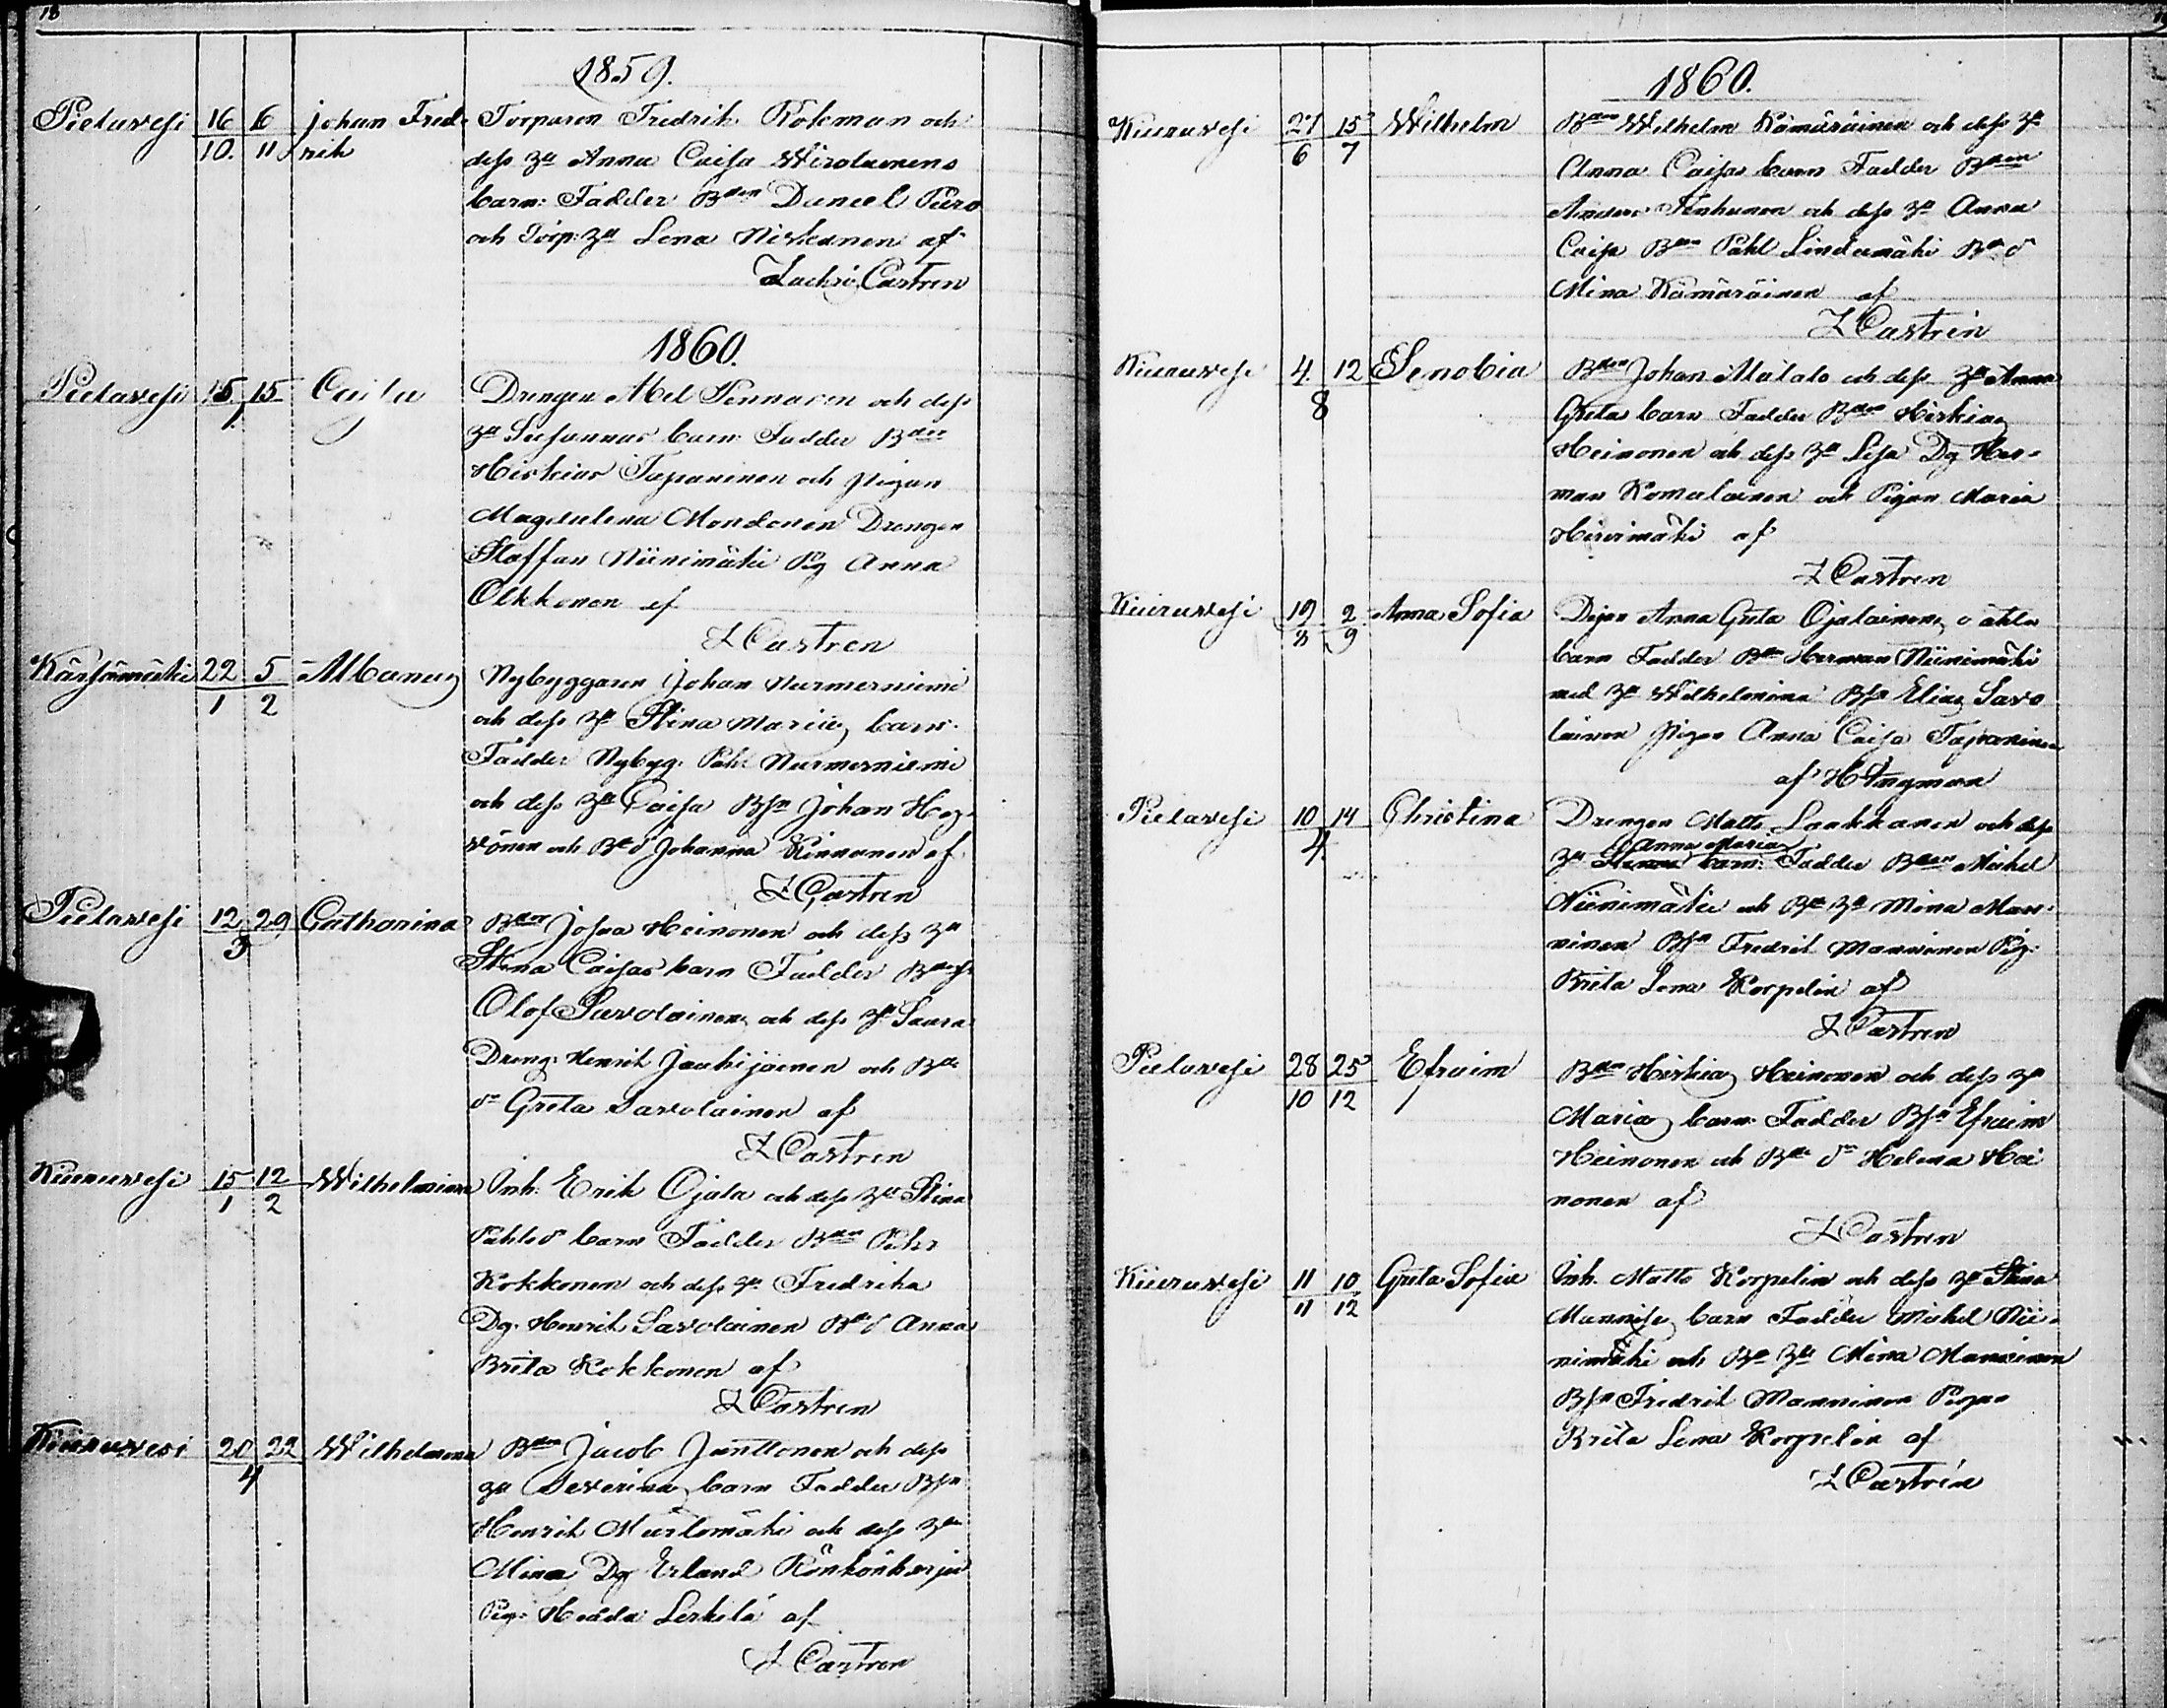 18
1859.
Pielavesi 16/10. 6/11 Johan Fred- Torparen Fredrik Rokman och
rik dess Hu Anna Caisa Wirolainens
barn: Fadder Bden Daniel Piiro
och Torp: Hu Lena Niskanen af
Zachri Castren
1860.
Pielavesi 15 15 Cajsa Drengen Abel Pennanen och dess
1.
Hu Susannas barn: Fadder Bden
Hiskias Tapaninen och Pigan
Magdalena Mondonen Drengen
Staffan Niinimäki Pig Anna
Olkkonen af
Z Castren
Kärsämäki 22/1 5/2 Albanus Nybyggaren Johan Nurmesniemi
och dess Hu Stina Marias barn.
Fadder Nybyg. Pehr Nurmesniemi
och dess Hu Caisa Bsn Johan
och Bdr Johanna Kinnunen af
Z Castren
Pielavesi 12 29 Catharina Bden Josua Heinonen och dess Hu
3
Stina Caisas barn Fadder
Olof Savolainen och dess Hu Laura
Dreng: Henrik Jauhijainen och Bde
dr Greta Savolainen af
Z Castren
Kiuruvesi 15/1 12/2 Wilhelmina Inh: Erik Ojala och dess Hu Stina
Pahlsdr barn Fadder Bden Pehr
Kokkonen och dess Hu Fredrika
Dg. Henrik Savolainen Bde dr Anna
Brita Kokkonen af
Z Castren
Kiuruvesi 20 22 Wilhelmina Bden Jacob Junttonen och dess
4
Hu Severinas barn Fadder Bsn
Henrik Murtomäki och dess Hu
Mina Dg Erland Rönkönharju
Pig: Hedda Leskelä af
Z Castren
19
1860.
Kiuruvesi 27/6 15/7 Wilhelm Bden Wilhelm Kämäräinen och dess Hu
Anna Caisas barn Fadder Bden
Anders Tenhunen och dess Hu Anna
Caisa Bden Påhl Lindumäki Bde dr
Mina Kämäräinen af
Z Castrén
Kiuruvesi 4 12 Senobia Bden Johan Mätälä och dess Hu Anna
8
Gretas barn Fadder Bden Hiskias
Heinonen och dess Hu Lisa Dg Her-
man Komulainen och Pigan Maria
Hirvimäki af
Z Castren
Kiuruvesi 19/8 2/9 Anna Sofia Pigan Anna Greta Ojalainens o ächta
barn Fadder Bden Herman Niinimäki
med Hu Wilhelmina Bsn Elias Savo
lainen Pigan Anna Caisa Tapaninen
af H Ingman
Pielavesi 10 14 Christina Drengen Matts Laukkanen och dess
4
Anna Marias
Hu barn: Fadder Bden Mikel
Niinimäki och Bde Hu Mina Man-
ninen Bsn Fredrik Manninen Pig:
Brita Lena Korpelin af
Z Castren
Pielavesi 28/10 25/12 Efraim Bden Hiskias Heinonen och dess Hu
Marias barn: Fadder Bsn Efraim
Heinonen och Bde dr Helena Hei
nonen af
Z Castren
Kiuruvesi 11/11 10/12 Greta Sofia Inh. Matts Korpelin och dess Hu Stina
barn Fadder Mikel Nii-
nimäki och Bde Hu Mina Manninen
Bsn Fredrik Manninen Pigan
Brita Lena Korpelin af
Z Castrén